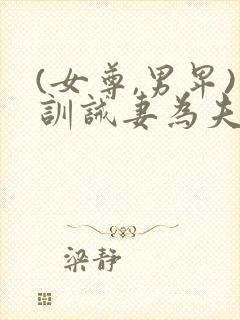 (女尊,男卑)
訓誡妻為夫
梁静